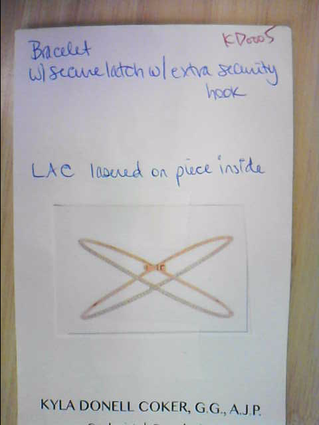 KD0005
Bracelet
w/ secure latch w/ extra security
hook
LAC lasered on piece inside
KYLA DONELL COKER, G.G., A.J.P.